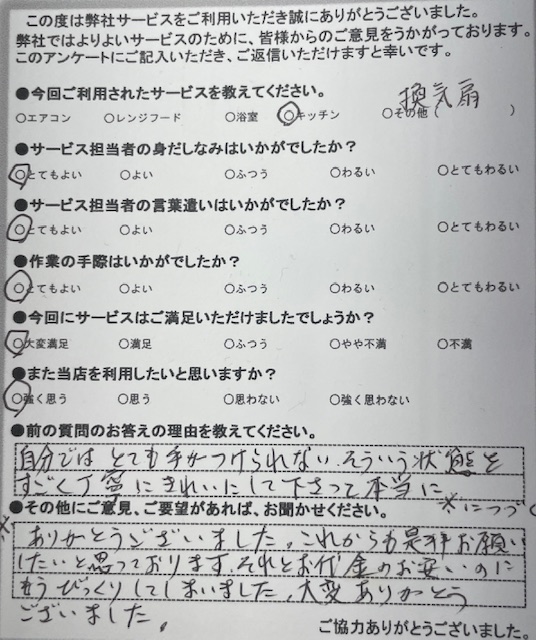 この度は弊社サービスをご利用いただき誠にありがとうございました。
弊社ではよりよいサービスのために、皆様からのご意見をうかがっております。
このアンケートにご記入いただき、ご返信いただけますと幸いです。
●今回ご利用されたサービスを教えてください。
換気扇
○エアコン ○レンジフード ○浴室 ○キッチン ○その他( )
●サービス担当者の身だしなみはいかがでしたか?
○とてもよい ○よい ○ふつう ○わるい ○とてもわるい
●サービス担当者の言葉遣いはいかがでしたか?
○とてもよい ○よい ○ふつう ○わるい ○とてもわるい
●作業の手際はいかがでしたか?
○とてもよい ○よい ○ふつう ○わるい ○とてもわるい
●今回にサービスはご満足いただけましたでしょうか?
○大変満足 ○満足 ○ふつう ○やや不満 ○不満
●また当店を利用したいと思いますか?
○強く思う ○思う ○思わない ○強く思わない
●前の質問のお答えの理由を教えてください。
自分では とても手がつけられない、そういう状態を
すごく丁寧にきれいにして下さって本当に
※につづく
●その他にご意見、ご要望があれば、お聞かせください。
※ ありがとうございました、これからも是非お願い
したいと思っております、それとお代金のお安いのに
もうびっくりしてしまいました、大変ありがとう
ございました。
ご協力ありがとうございました。